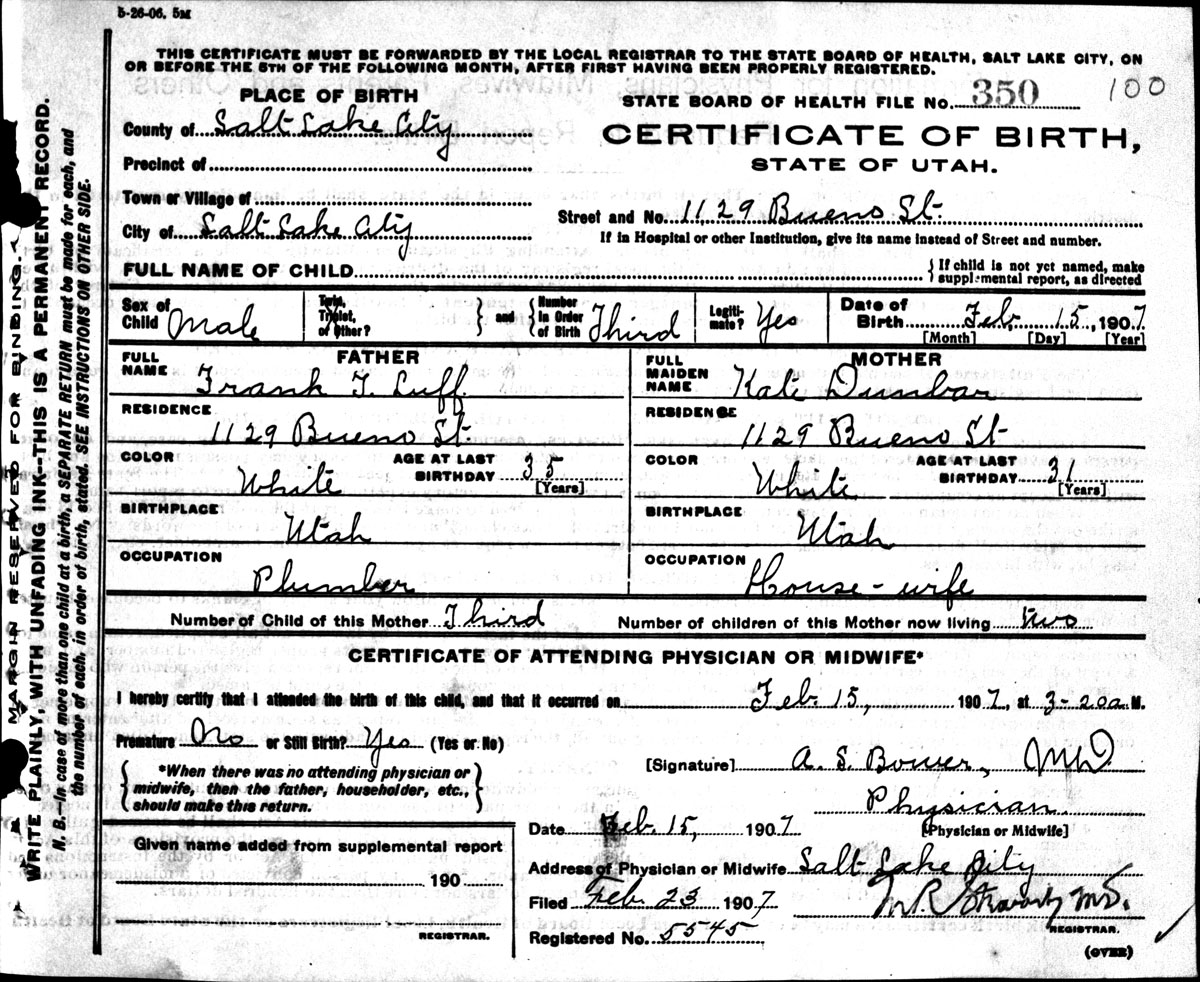 5-26-06. 5M
THIS CERTIFICATE MUST BE FORWARDED BY THE LOCAL REGISTRAR TO THE STATE BOARD OF HEALTH, SALT LAKE CITY, ON
OR BEFORE THE 5TH OF THE FOLLOWING MONTH, AFTER FIRST HAVING BEEN PROPERLY REGISTERED.
PLACE OF BIRTH
STATE BOARD OF HEALTH FILE No. 350 100
County of Salt Lake City
CERTIFICATE OF BIRTH,
Precinct of
STATE OF UTAH.
Town or Village of
Street and No. 1129 Bueno St.
City of Salt Lake City
If in Hospital or other Institution, give its name instead of Street and number.
FULL NAME OF CHILD
If child is not yet named, make
supplemental report, as directed
Sex of Child Male
Twin, Triplet, or Other?
and
Number in Order of Birth Third
Legiti-mate? Yes
Date of Birth Feb. 15, 1907
[Month] [Day] [Year]
FATHER
MOTHER
FULL NAME Frank T. Luff
FULL MAIDEN NAME Kate Dunbar
RESIDENCE 1129 Bueno St.
RESIDENCE 1129 Bueno St
COLOR White AGE AT LAST BIRTHDAY 35 [Years]
COLOR White AGE AT LAST BIRTHDAY 31 [Years]
BIRTHPLACE Utah
BIRTHPLACE Utah
OCCUPATION Plumber
OCCUPATION House-wife
Number of Child of this Mother Third Number of children of this Mother now living two
CERTIFICATE OF ATTENDING PHYSICIAN OR MIDWIFE*
I hereby certify that I attended the birth of this child, and that it occurred on Feb. 15, 1907, at 3-20a M.
Premature No or Still Birth? Yes (Yes or No)
[Signature] A. S. Bower, MD.
*When there was no attending physician or
midwife, then the father, householder, etc.,
should make this return.
Physician
[Physician or Midwife]
Date Feb. 15, 1907
Given name added from supplemental report
190
REGISTRAR.
Address of Physician or Midwife Salt Lake City
Filed Feb. 23 1907
M.D.
REGISTRAR.
Registered No. 5545
(OVER)
MARGIN RESERVED FOR BINDING.
WRITE PLAINLY, WITH UNFADING INK--THIS IS A PERMANENT RECORD.
N. B.--In case of more than one child at a birth, a SEPARATE RETURN must be made for each, and
the number of each, in order of birth, stated. SEE INSTRUCTIONS ON OTHER SIDE.